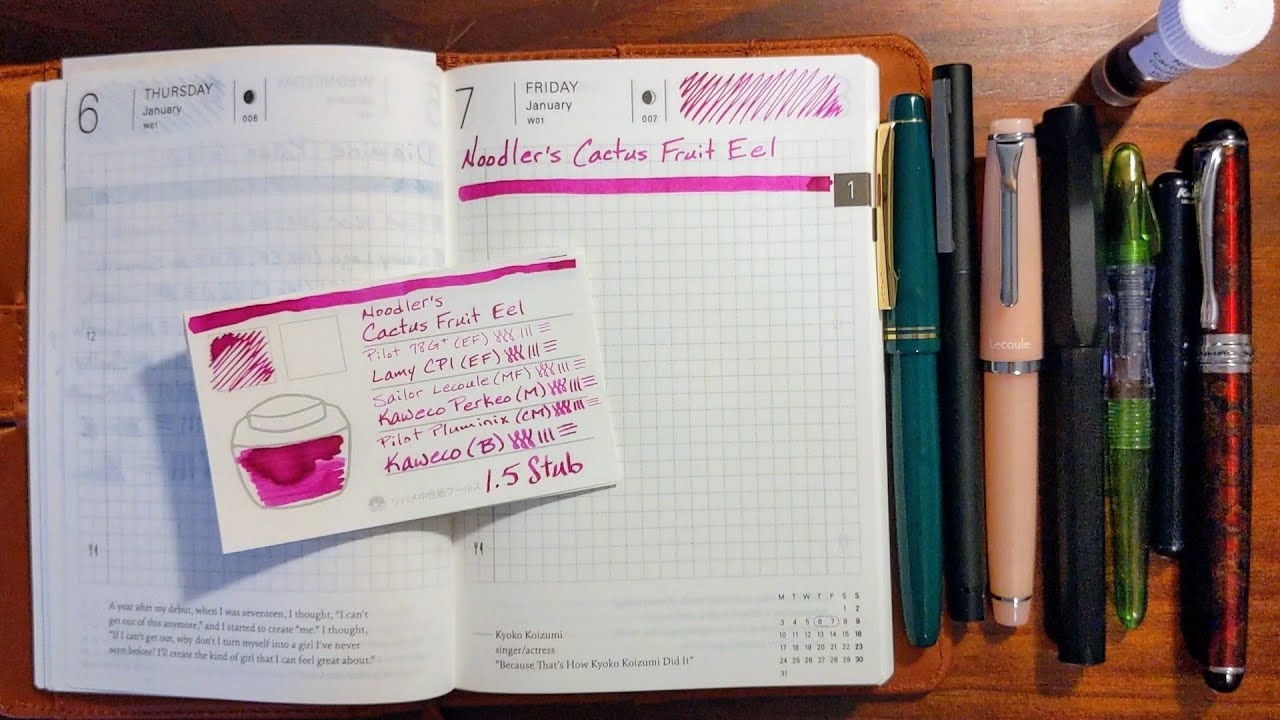 6
THURSDAY
January
W01
006
7
FRIDAY
January
W01
007
Noodler's Cactus Fruit Eel
1
12
Noodler's
Cactus Fruit Eel
Pilot 78G+ (EF)
Lamy CP1 (EF)
Sailor Lecoule (MF)
Kaweco Perkeo (M)
Pilot Pluminix (CM)
Kaweco (B)
1.5 Stub
ツバメ中性紙フールス
A year after my debut, when I was seventeen, I thought, "I can't
get out of this anymore," and I started to create "me." I thought,
"If I can't get out, why don't I turn myself into a girl I've never
seen before? I'll create the kind of girl that I can feel great about."
Kyoko Koizumi
singer/actress
"Because That's How Kyoko Koizumi Did It"
M T W T F S S
1 2
3 4 5 6 7 8 9
10 11 12 13 14 15 16
17 18 19 20 21 22 23
24 25 26 27 28 29 30
31
Lecoule